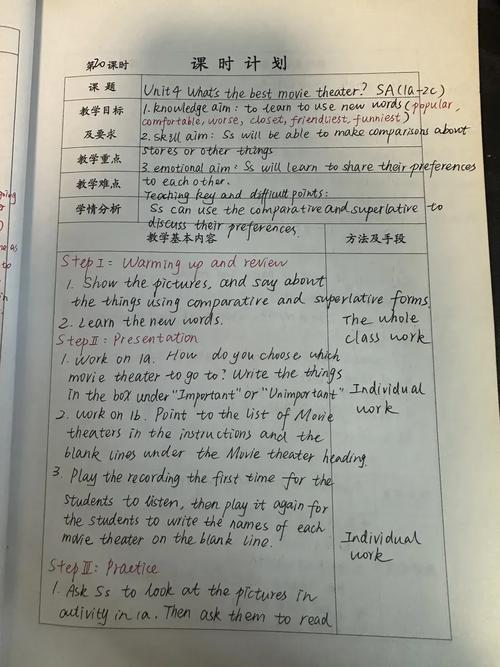 第20课时 课时计划
课题 Unit 4 What's the best movie theater? SA(1a-2c)
教学目标 1. knowledge aim: to learn to use new words (popular,
comfortable, worse, closet, friendliest, funniest)
及要求 2. skill aim: Ss will be able to make comparisons about
stores or other things
教学重点
3. emotional aim: Ss will learn to share their preferences
教学难点 to each other.
Teaching key and difficult points:
学情分析 Ss can use the comparative and superlative to
discuss their preferences.
教学基本内容 方法及手段
Step I: Warming up and review
1. Show the pictures, and say about
the things using comparative and superlative forms.
2. Learn the new words. The whole
class work
Step II: Presentation
1. Work on 1a. How do you choose which
movie theater to go to? Write the things
in the box under "Important" or "Unimportant" Individual
work
2. work on 1b. Point to the list of Movie
theaters in the instructions and the
blank lines under the Movie theater heading.
3. Play the recording the first time for the
students to listen, then play it again for
the students to write the names of each
movie theater on the blank line. Individual
work
Step III: Practice
1. Ask Ss to look at the pictures in
activity in 1a. Then ask them to read